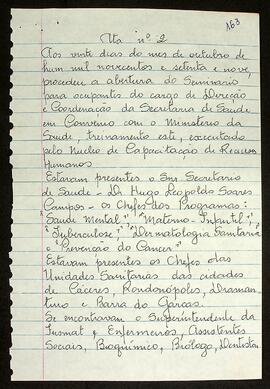 163
Ata nº 2
Aos vinte dias do mes de outubro de
hum mil novecentos e setenta e nove,
procedeu a abertura do Seminario
para ocupantes do cargo de Direção
e Coordenação da Secretaria de Saude
em Convenio com o Ministério da
Saude, treinamento este, executado
pelo Nucleo de Capacitação de Recursos
Humanos
Estavam presentes o Snr Secretario
de Saude - Dr Hugo Leopoldo Soares
Campos - os Chefes dos Programas:
"Saude Mental", "Materno-Infantil",
"Tuberculose", "Dermatologia Sanitaria
e "Prevenção do Cancer".
Estavam presentes os Chefes das
Unidades Sanitarias das cidades
de Caceres, Rondonópolis, Diaman
tino e Barra do Garças.
Se encontravam o Superintendente da
Fusmat e Enfermeiros, Assistentes
Sociais, Bioquímico, Biólogo, Dentistas